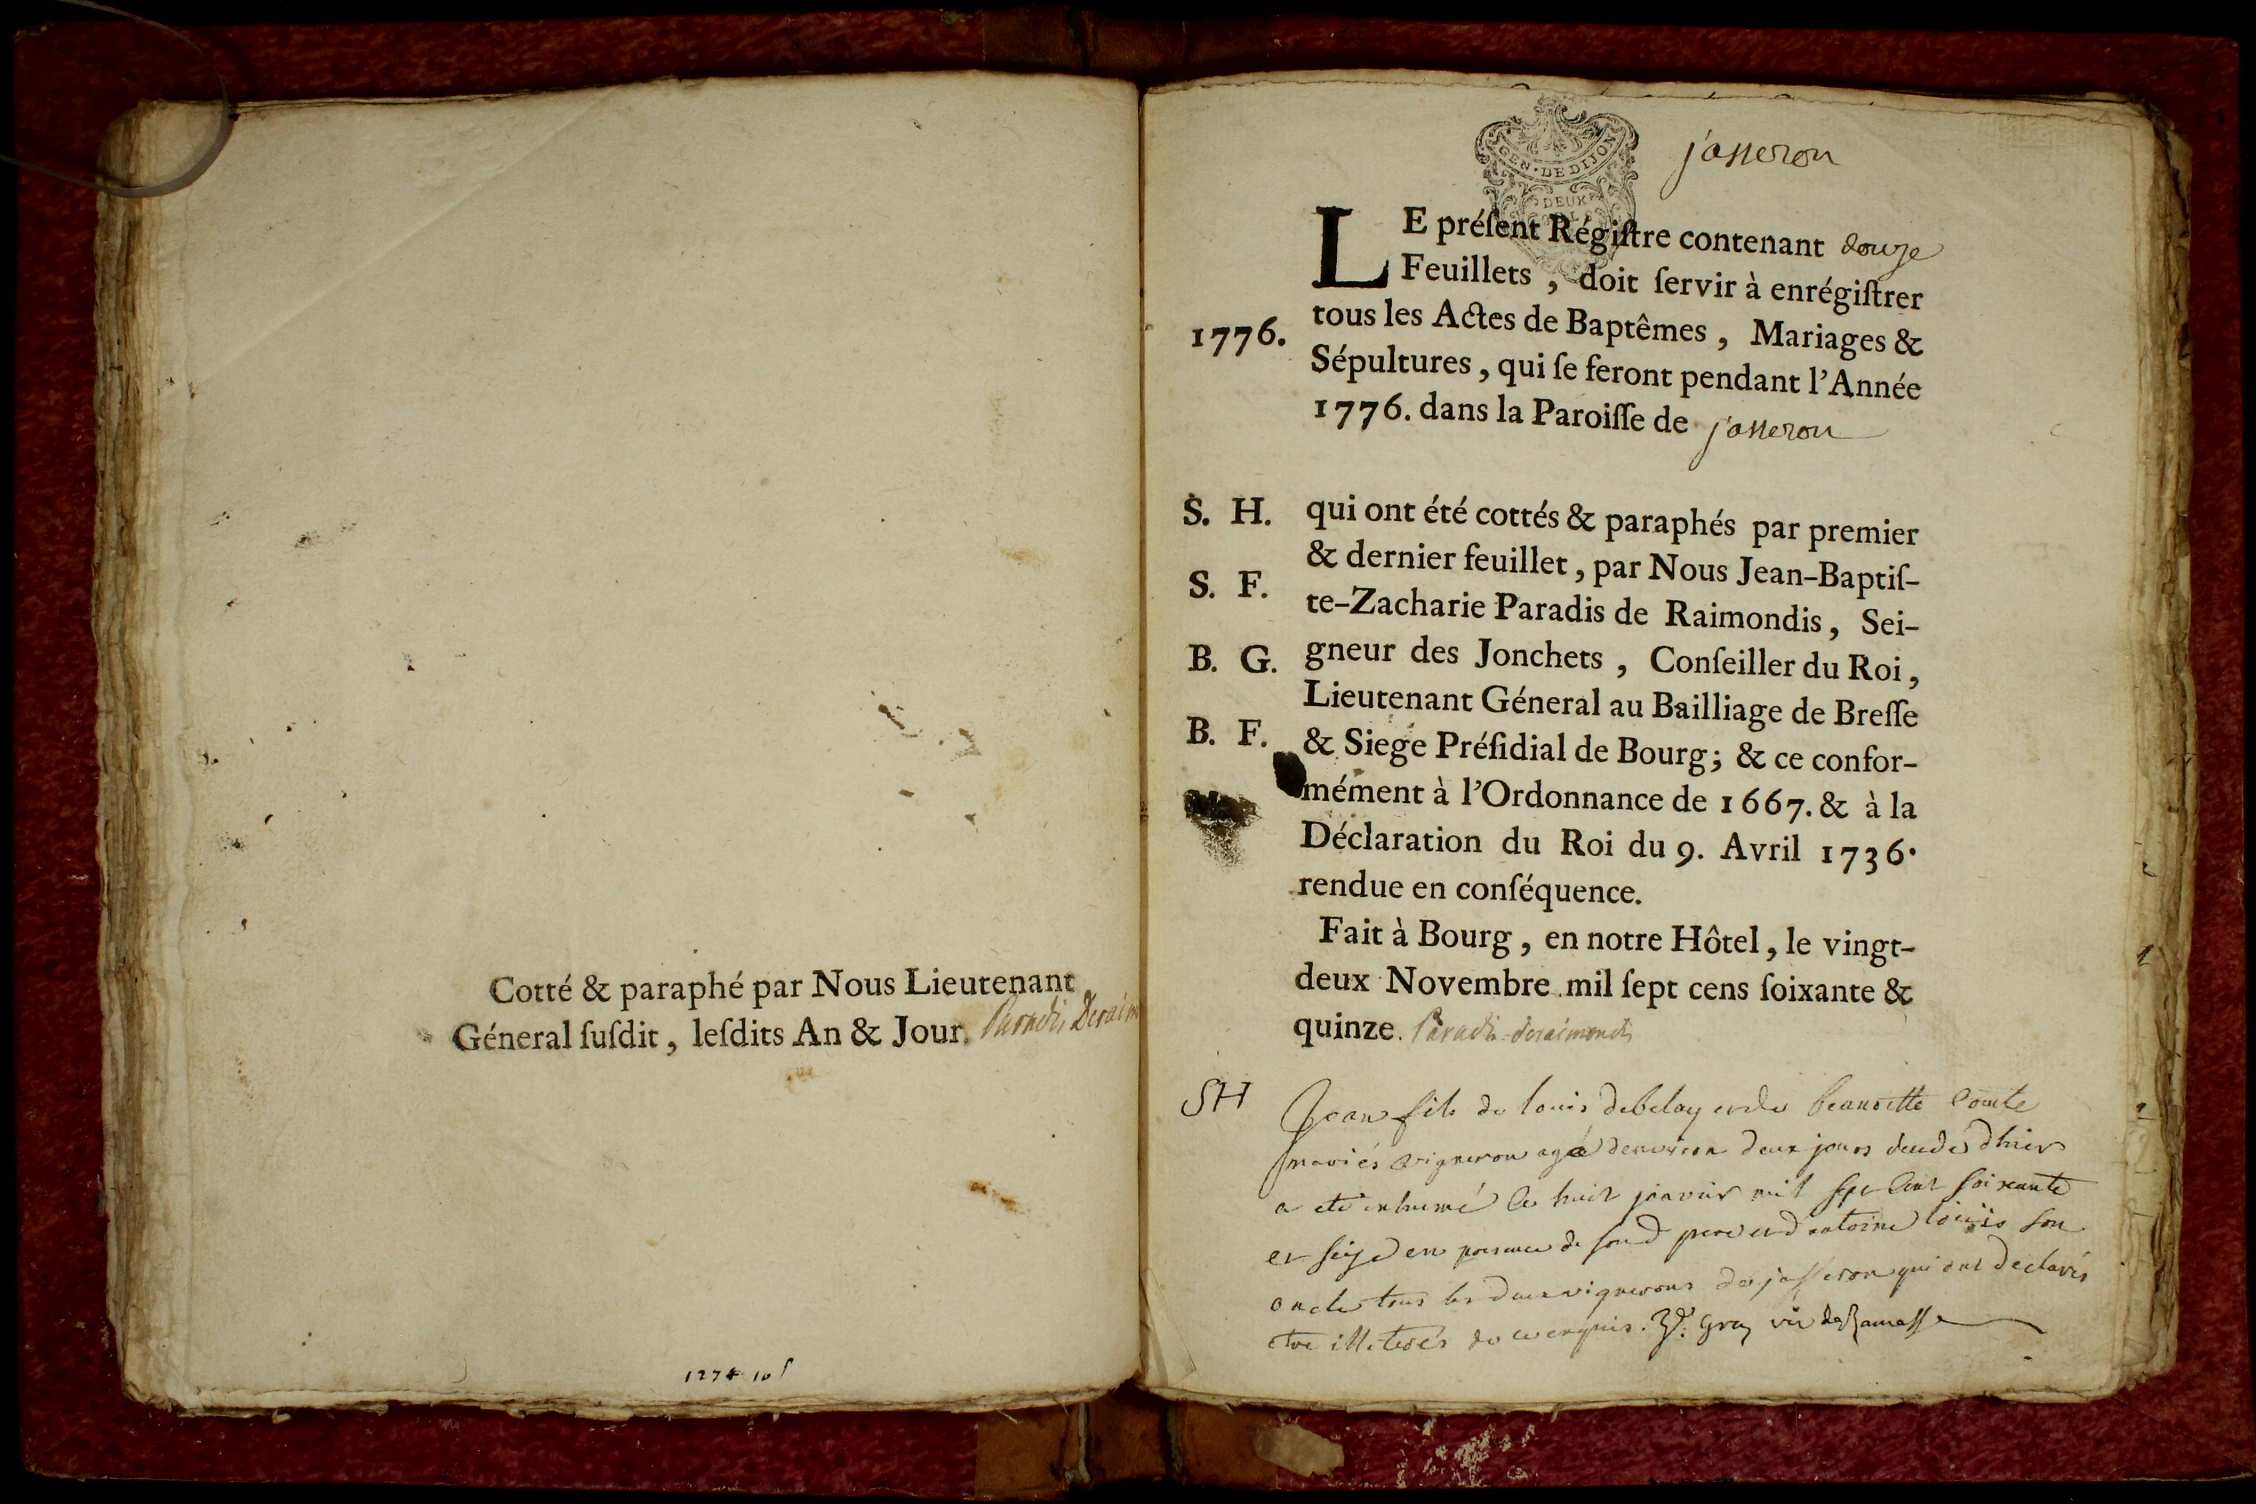 Cotté & paraphé par Nous Lieutenant
Géneral ſuſdit, leſdits An & Jour. Paradis Deraim
1274 10 s
jasseron
GEN · DE DIJON
DEUX
LE préſent Régiſtre contenant douze
Feuillets, doit ſervir à enrégiſtrer
tous les Actes de Baptêmes, Mariages &
1776.
Sépultures, qui ſe feront pendant l'Année
1776. dans la Paroiſſe de jasseron
S. H.
qui ont été cottés & paraphés par premier
& dernier feuillet, par Nous Jean-Baptiſ-
S. F.
te-Zacharie Paradis de Raimondis, Sei-
B. G.
gneur des Jonchets, Conſeiller du Roi,
Lieutenant Géneral au Bailliage de Breſſe
B. F.
& Siege Préſidial de Bourg; & ce confor-
mément à l'Ordonnance de 1667. & à la
Déclaration du Roi du 9. Avril 1736.
rendue en conſéquence.
Fait à Bourg, en notre Hôtel, le vingt-
deux Novembre mil ſept cens ſoixante &
quinze. Paradis deraimondis
SH
Jean fils de louis debelay et de Comte
mariés vigneron agé denviron deux jours decedé dhier
a eté inhumé le huit janvier mil sept cent soixante
et seize en presence de sond pere et d antoine louis son
oncle tous les deux vignerons de jasseron qui ont declarés
etre illiterés de ce enquis. Gray vic de Ramasse